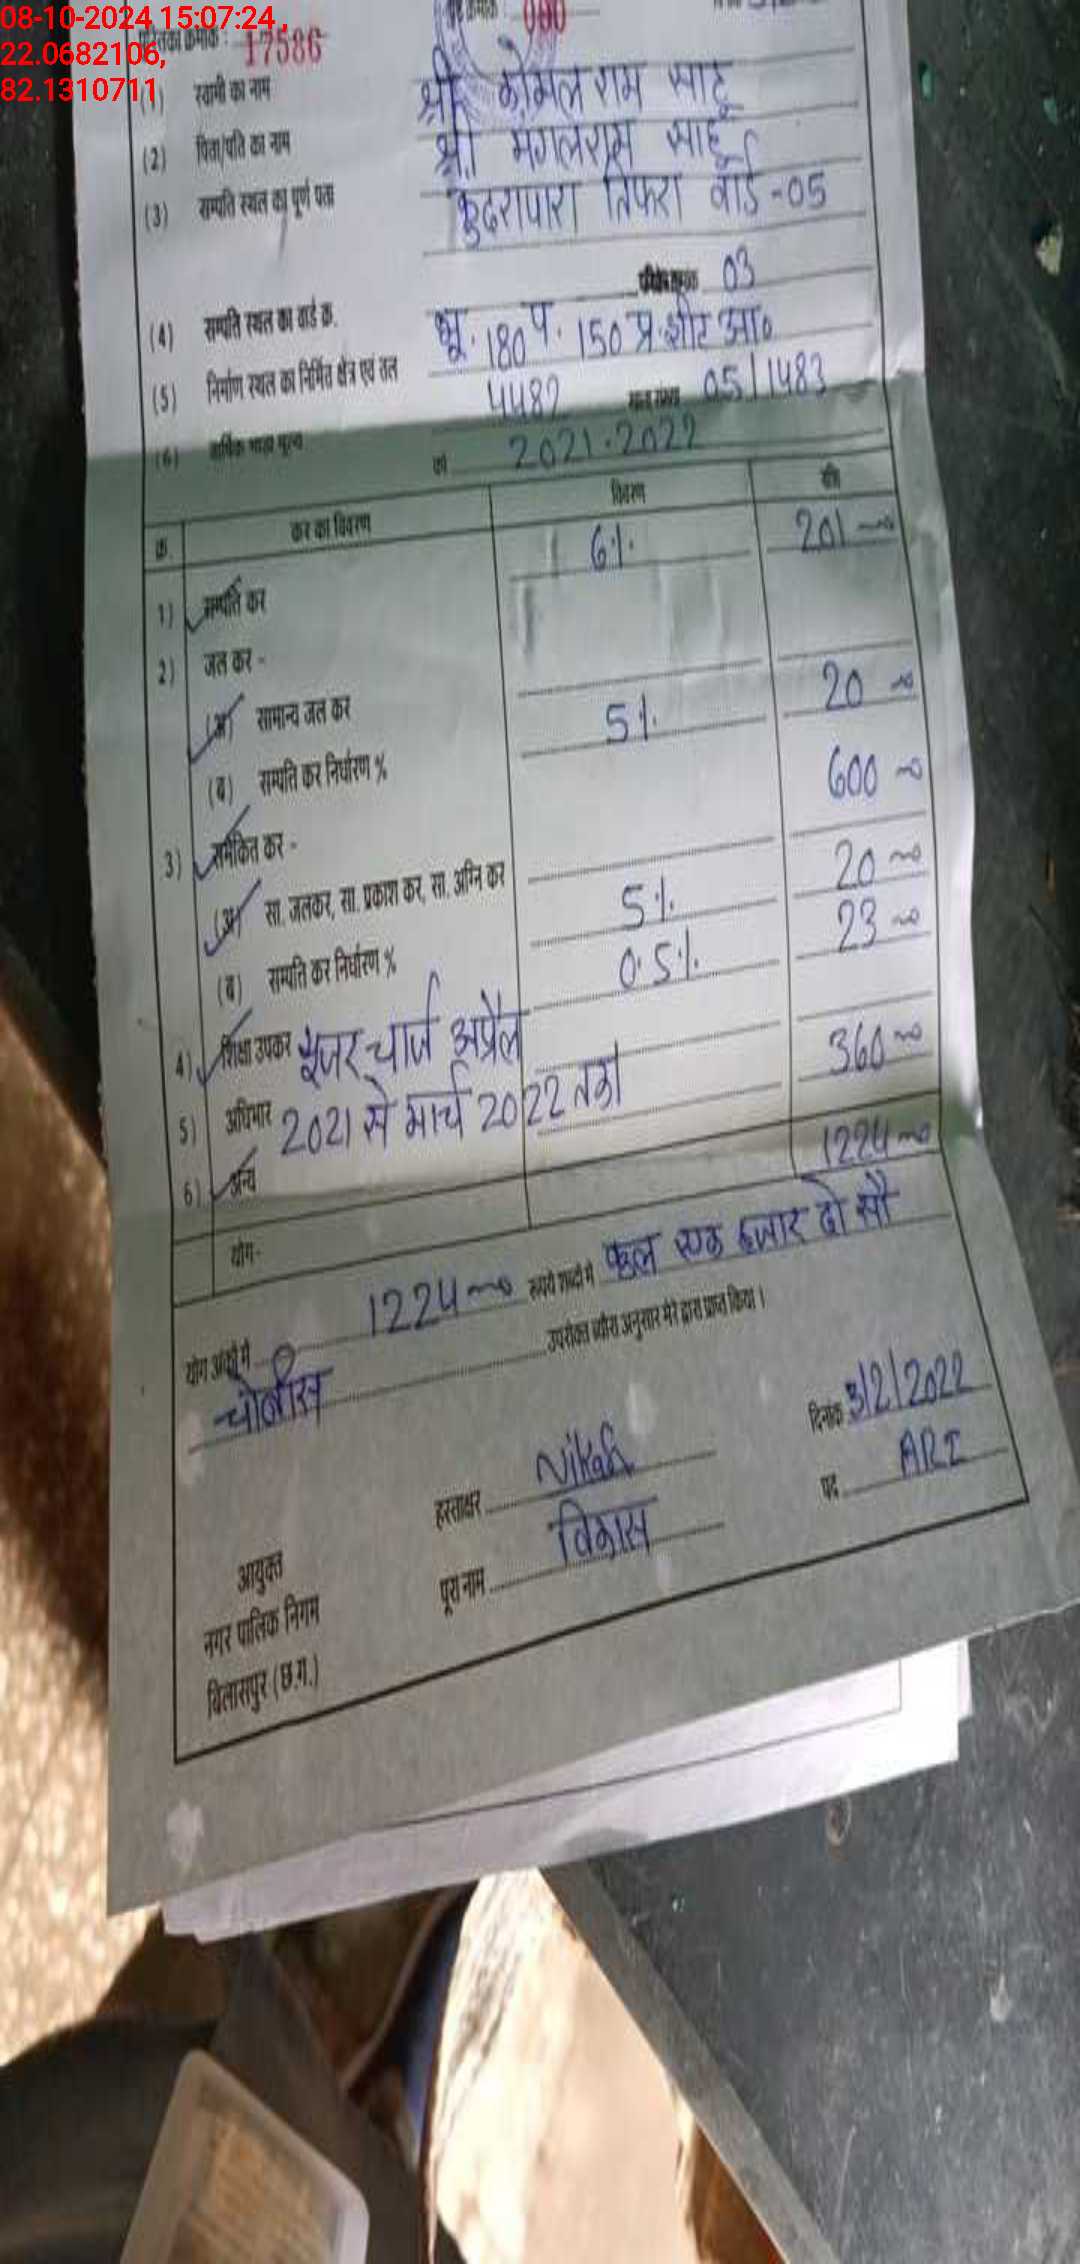 08-10-2024 15:07:24,
22.0682106,
82.1310711
पुस्तिका क्रमांक : 17586
(1) स्वामी का नाम श्री कोमल राम साहू
(2) पिता/पति का नाम श्री मंगलराम साहू
(3) सम्पति स्थल का पूर्ण पता कुदरापारा तिफरा वार्ड-05
03
(4) सम्पति स्थल का वार्ड क्र. भू. 180 प. 150 प्र. शीट आ०
(5) निर्माण स्थल का निर्मित क्षेत्र एवं तल 4482 05/1483
(6) वार्षिक भाड़ा मूल्य 2021-2022
क्र. कर का विवरण विवरण राशि
1) सम्पति कर 6% 201
2) जल कर -
(अ) सामान्य जल कर
(ब) सम्पति कर निर्धारण % 5% 20
3) समेकित कर -
(अ) सा. जलकर, सा. प्रकाश कर, सा. अग्नि कर 600
(ब) सम्पति कर निर्धारण % 5% 20
4) शिक्षा उपकर 0.5% 23
यूजर चार्ज अप्रैल
5) अधिभार 2021 से मार्च 2022 तक
6) अन्य 360
योग- 1224
योग अंकों में 1224 रूपये शब्दों में कुल एक हजार दो सौ
चौबीस उपरोक्त ब्यौरा अनुसार मेरे द्वारा प्राप्त किया।
दिनांक 3/2/2022
हस्ताक्षर Vikas
पद ARI
पूरा नाम विकास
आयुक्त
नगर पालिक निगम
बिलासपुर (छ.ग.)